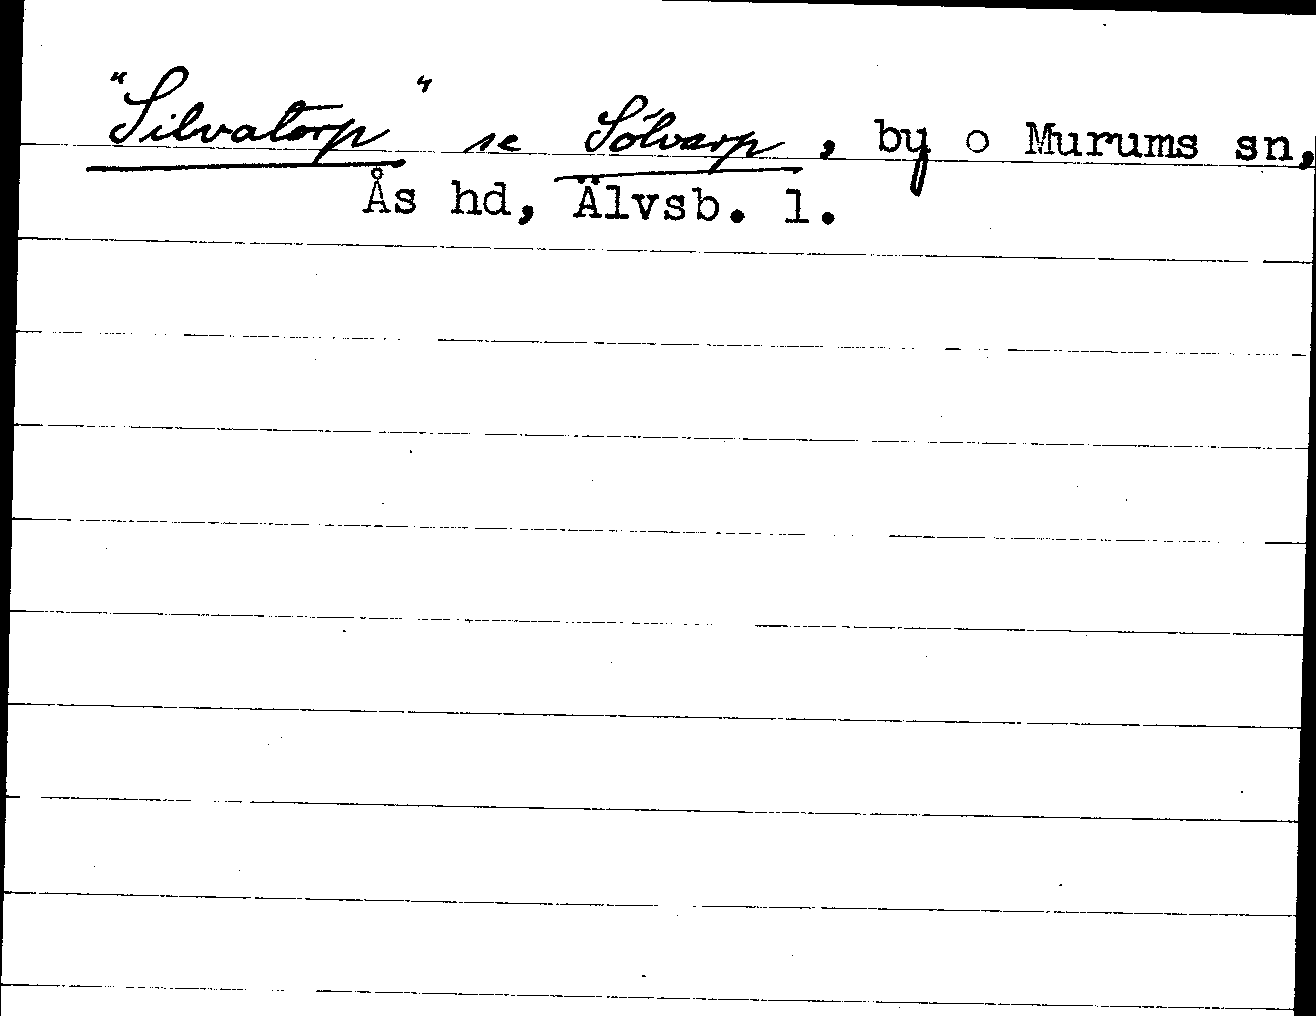 "Silvatorp" se Sölvarp, by o Murums sn,
Ås hd, Älvsb. l.